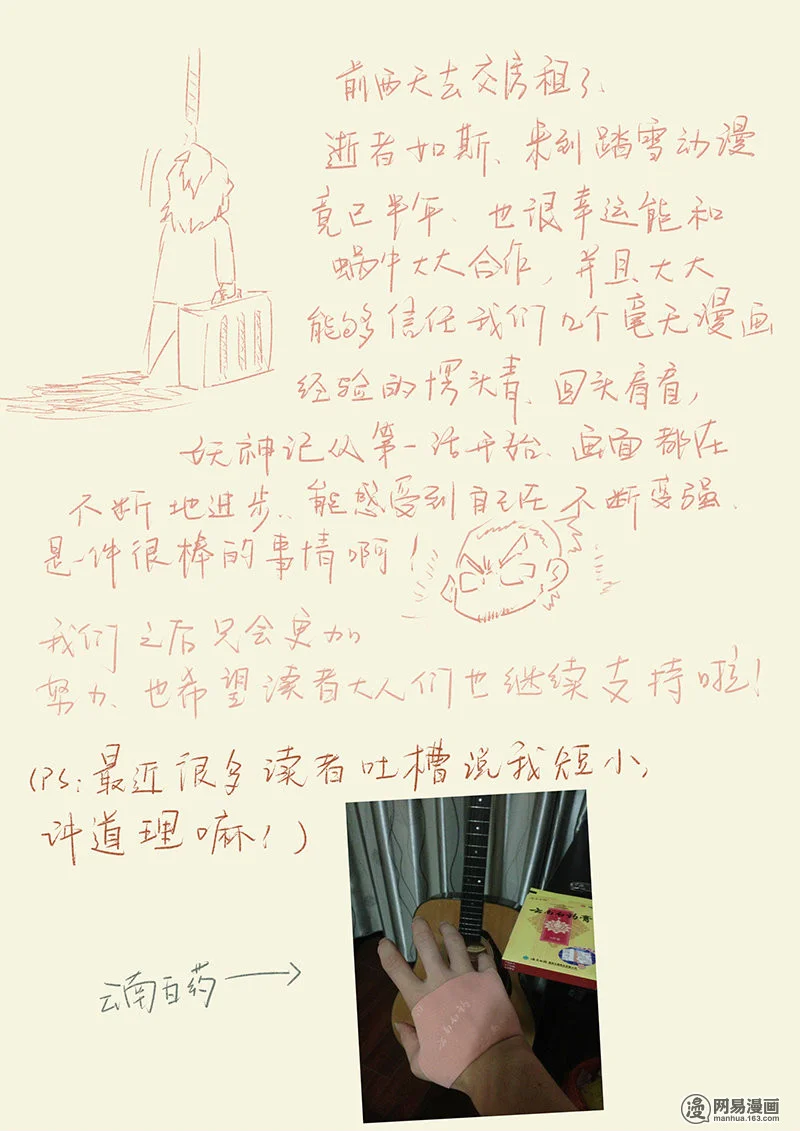 前两天去交房租了、
逝者如斯、来到踏雪动漫
竟已半年、也很幸运能和
蜗牛大大合作，并且大大
能够信任我们几个毫无漫画
经验的愣头青、回头看看，
妖神记从第一话开始、画面都在
不断地进步、能感受到自己在不断变强、
是一件很棒的事情啊！
我们之后只会更加
努力、也希望读者大人们也继续支持啦！
(PS:最近很多读者吐槽说我短小，
讲道理嘛！)
云南白药
云南白药膏
漫 网易漫画
manhua.163.com